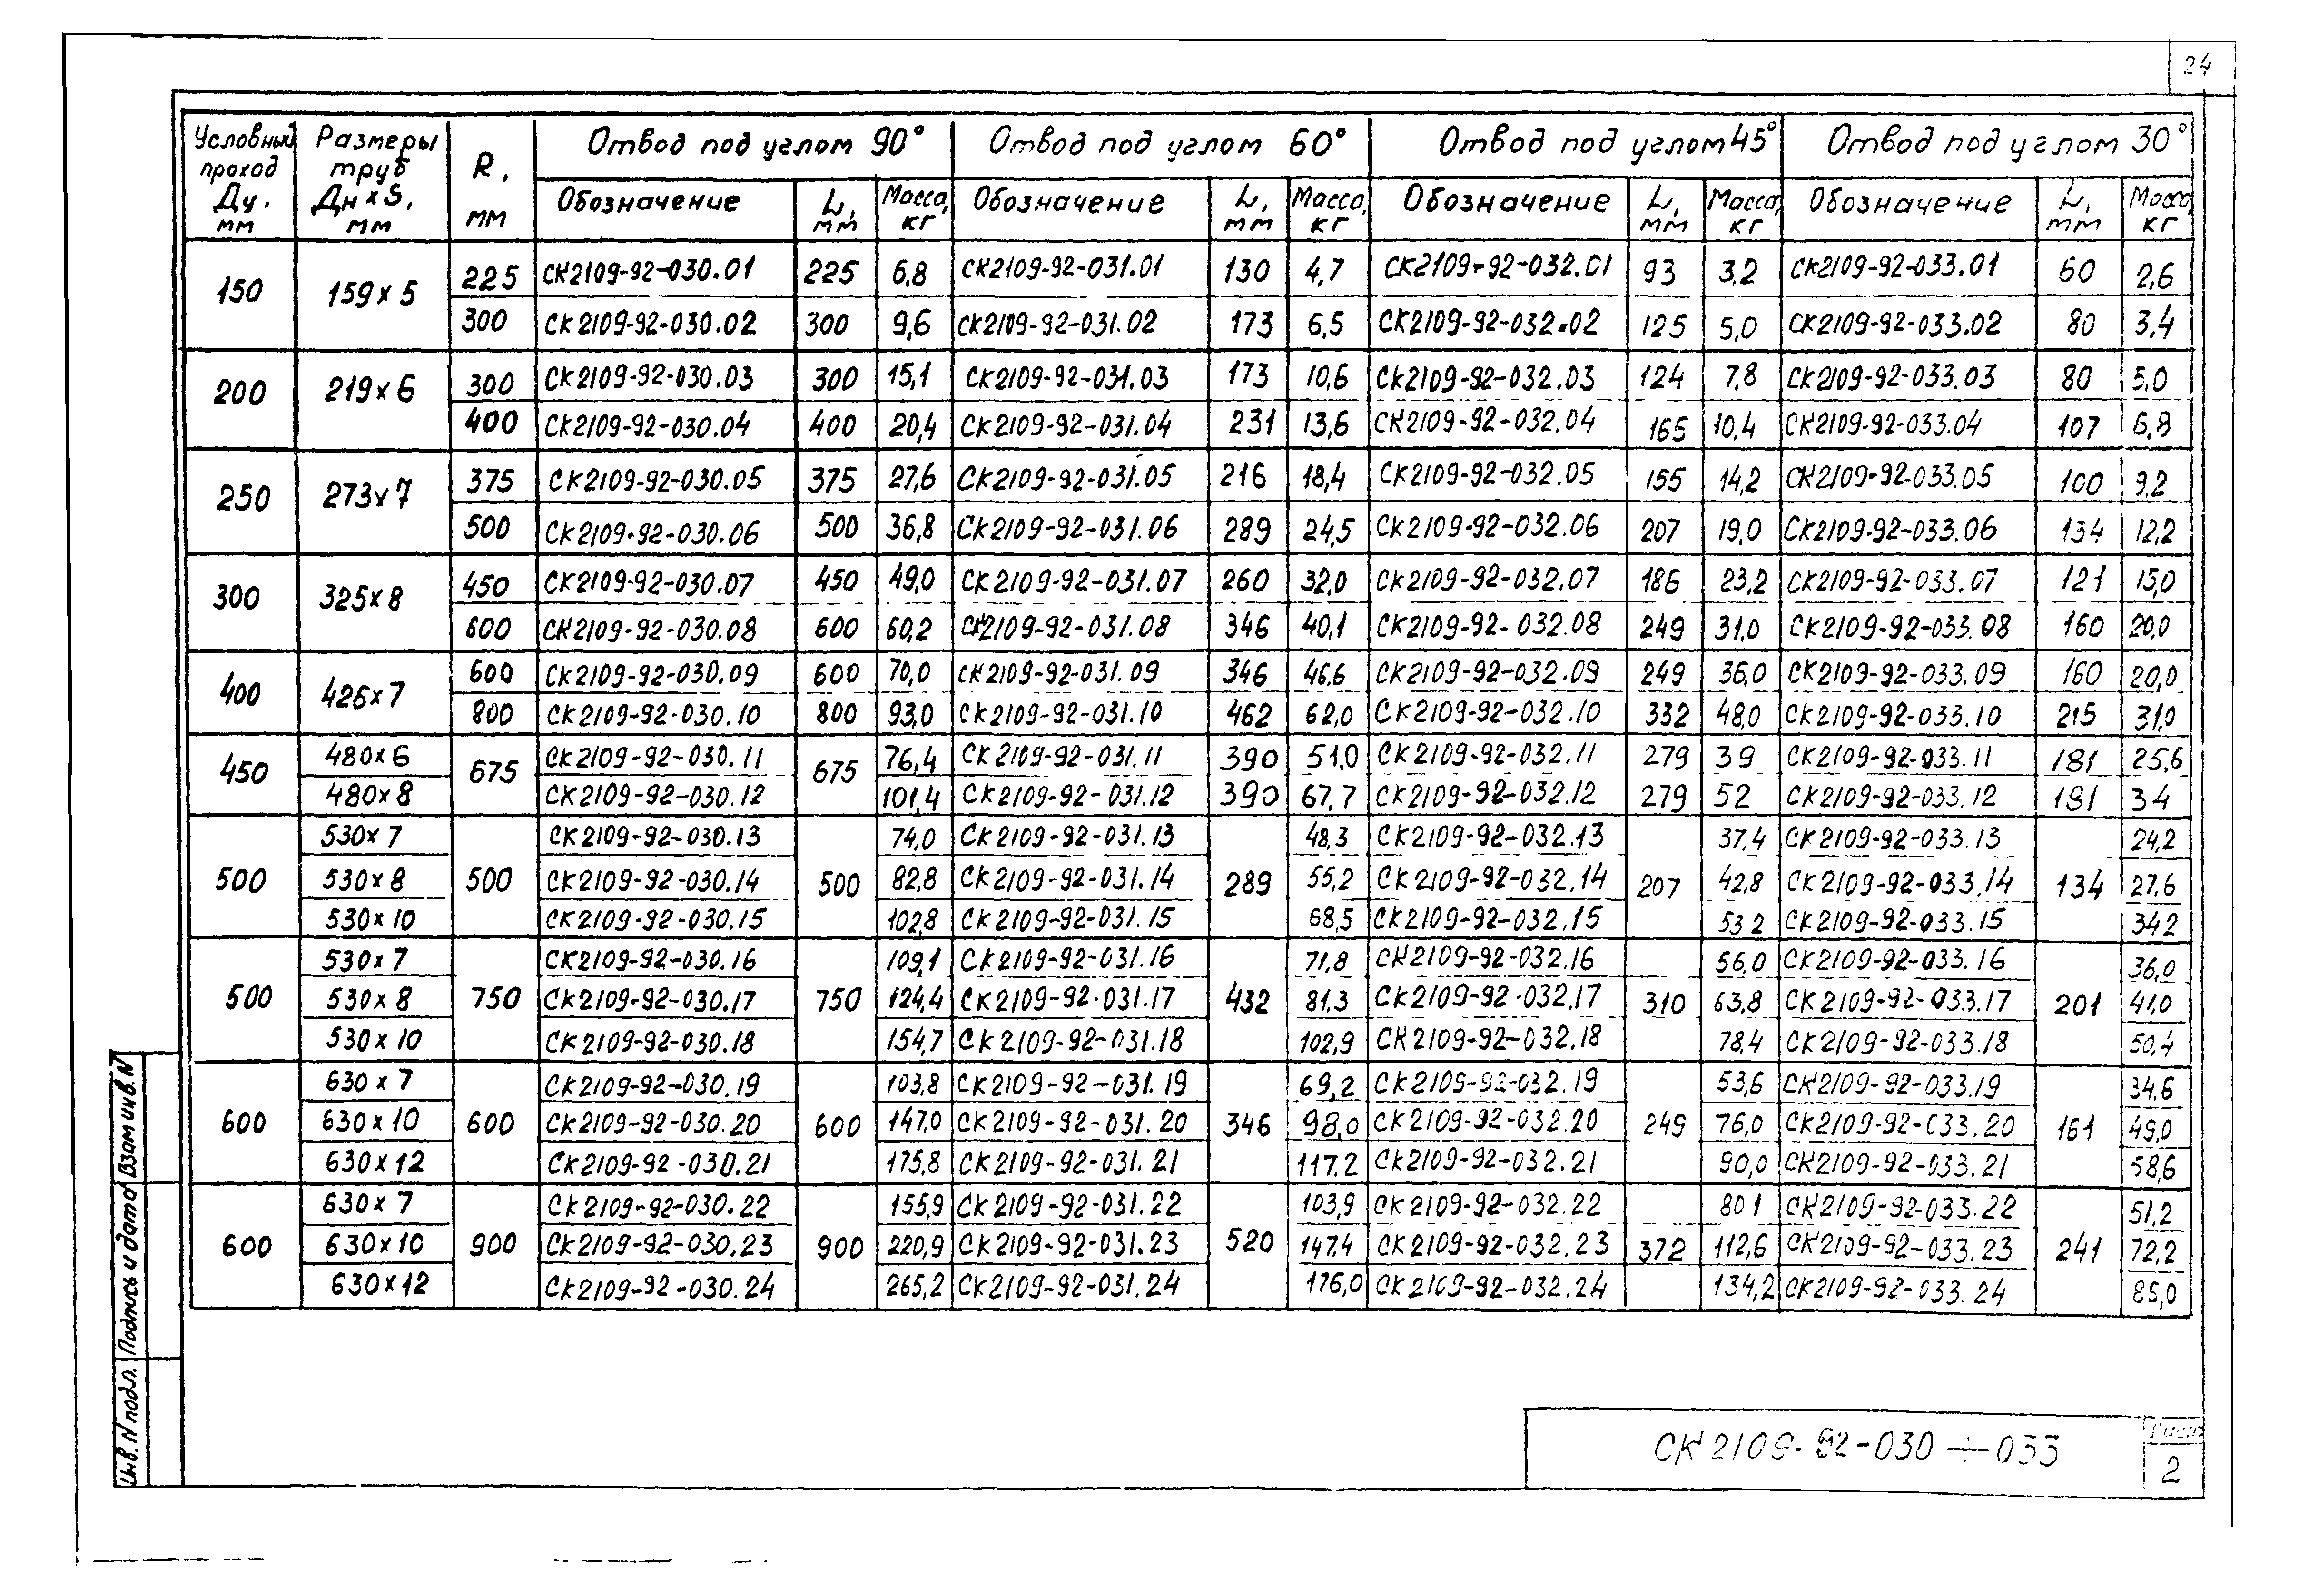 24
Условный проход Ду, мм | Размеры труб Дн х S, мм | R, мм | Отвод под углом 90° | Отвод под углом 60° | Отвод под углом 45° | Отвод под углом 30°
Обозначение | L, мм | Масса, кг | Обозначение | L, мм | Масса, кг | Обозначение | L, мм | Масса, кг | Обозначение | L, мм | Масса, кг
150 | 159х5 | 225 | СК2109-92-030.01 | 225 | 6,8 | СК2109-92-031.01 | 130 | 4,7 | СК2109-92-032.01 | 93 | 3,2 | СК2109-92-033.01 | 60 | 2,6
300 | СК2109-92-030.02 | 300 | 9,6 | СК2109-92-031.02 | 173 | 6,5 | СК2109-92-032.02 | 125 | 5,0 | СК2109-92-033.02 | 80 | 3,4
200 | 219х6 | 300 | СК2109-92-030.03 | 300 | 15,1 | СК2109-92-031.03 | 173 | 10,6 | СК2109-92-032.03 | 124 | 7,8 | СК2109-92-033.03 | 80 | 5,0
400 | СК2109-92-030.04 | 400 | 20,4 | СК2109-92-031.04 | 231 | 13,6 | СК2109-92-032.04 | 165 | 10,4 | СК2109-92-033.04 | 107 | 6,8
250 | 273х7 | 375 | СК2109-92-030.05 | 375 | 27,6 | СК2109-92-031.05 | 216 | 18,4 | СК2109-92-032.05 | 155 | 14,2 | СК2109-92-033.05 | 100 | 9,2
500 | СК2109-92-030.06 | 500 | 36,8 | СК2109-92-031.06 | 289 | 24,5 | СК2109-92-032.06 | 207 | 19,0 | СК2109-92-033.06 | 134 | 12,2
300 | 325х8 | 450 | СК2109-92-030.07 | 450 | 49,0 | СК2109-92-031.07 | 260 | 32,0 | СК2109-92-032.07 | 186 | 23,2 | СК2109-92-033.07 | 121 | 15,0
600 | СК2109-92-030.08 | 600 | 60,2 | СК2109-92-031.08 | 346 | 40,1 | СК2109-92-032.08 | 249 | 31,0 | СК2109-92-033.08 | 160 | 20,0
400 | 426х7 | 600 | СК2109-92-030.09 | 600 | 70,0 | СК2109-92-031.09 | 346 | 46.6 | СК2109-92-032.09 | 249 | 36,0 | СК2109-92-033.09 | 160 | 20,0
800 | СК2109-92-030.10 | 800 | 93,0 | СК2109-92-031.10 | 462 | 62,0 | СК2109-92-032.10 | 332 | 48,0 | СК2109-92-033.10 | 215 | 31,0
450 | 480х6 | 675 | СК2109-92-030.11 | 675 | 76,4 | СК2109-92-031.11 | 390 | 51,0 | СК2109-92-032.11 | 279 | 39 | СК2109-92-033.11 | 181 | 25,6
480х8 | СК2109-92-030.12 | 101,4 | СК2109-92-031.12 | 390 | 67,7 | СК2109-92-032.12 | 279 | 52 | СК2109-92-033.12 | 181 | 34
530х7 | СК2109-92-030.13 | 74,0 | СК2109-92-031.13 | 48,3 | СК2109-92-032.13 | 37,4 | СК2109-92-033.13 | 24,2
500 | 530х8 | 500 | СК2109-92-030.14 | 500 | 82,8 | СК2109-92-031.14 | 289 | 55,2 | СК2109-92-032.14 | 207 | 42,8 | СК2109-92-033.14 | 134 | 27.6
530х10 | СК2109-92-030.15 | 102,8 | СК2109-92-031.15 | 68,5 | СК2109-92-032.15 | 53 2 | СК2109-92-033.15 | 34 2
530х7 | СК2109-92-030.16 | 109,1 | СК2109-92-031.16 | 71,8 | СК2109-92-032.16 | 56,0 | СК2109-92-033.16 | 36,0
500 | 530х8 | 750 | СК2109-92-030.17 | 750 | 124,4 | СК2109-92-031.17 | 432 | 81,3 | СК2109-92-032.17 | 310 | 63,8 | СК2109-92-033.17 | 201 | 41,0
530х10 | СК2109-92-030.18 | 154,7 | СК2109-92-031.18 | 102,9 | СК2109-92-032.18 | 78,4 | СК2109-92-033.18 | 50,4
630х7 | СК2109-92-030.19 | 103,8 | СК2109-92-031.19 | 69,2 | СК2109-92-032.19 | 53,6 | СК2109-92-033.19 | 34,6
600 | 630х10 | 600 | СК2109-92-030.20 | 600 | 147,0 | СК2109-92-031.20 | 346 | 98,0 | СК2109-92-032.20 | 249 | 76,0 | СК2109-92-033.20 | 161 | 49,0
630х12 | СК2109-92-030.21 | 175,8 | СК2109-92-031.21 | 117.2 | СК2109-92-032.21 | 90,0 | СК2109-92-033.21 | 58,6
630х7 | СК2109-92-030.22 | 155,9 | СК2109-92-031.22 | 103,9 | СК2109-92-032.22 | 80 1 | СК2109-92-033.22 | 51,2
600 | 630х10 | 900 | СК2109-92-030.23 | 900 | 220,9 | СК2109-92-031.23 | 520 | 147.4 | СК2109-92-032.23 | 372 | 112,6 | СК2109-92-033.23 | 241 | 72,2
630х12 | СК2109-92-030.24 | 265,2 | СК2109-92-031.24 | 176,0 | СК2109-92-032.24 | 134,2 | СК2109-92-033.24 | 85,0
Инв. N подл. | Подпись и дата | Взам инв. N
СК2109-92-030÷033
Лист
2